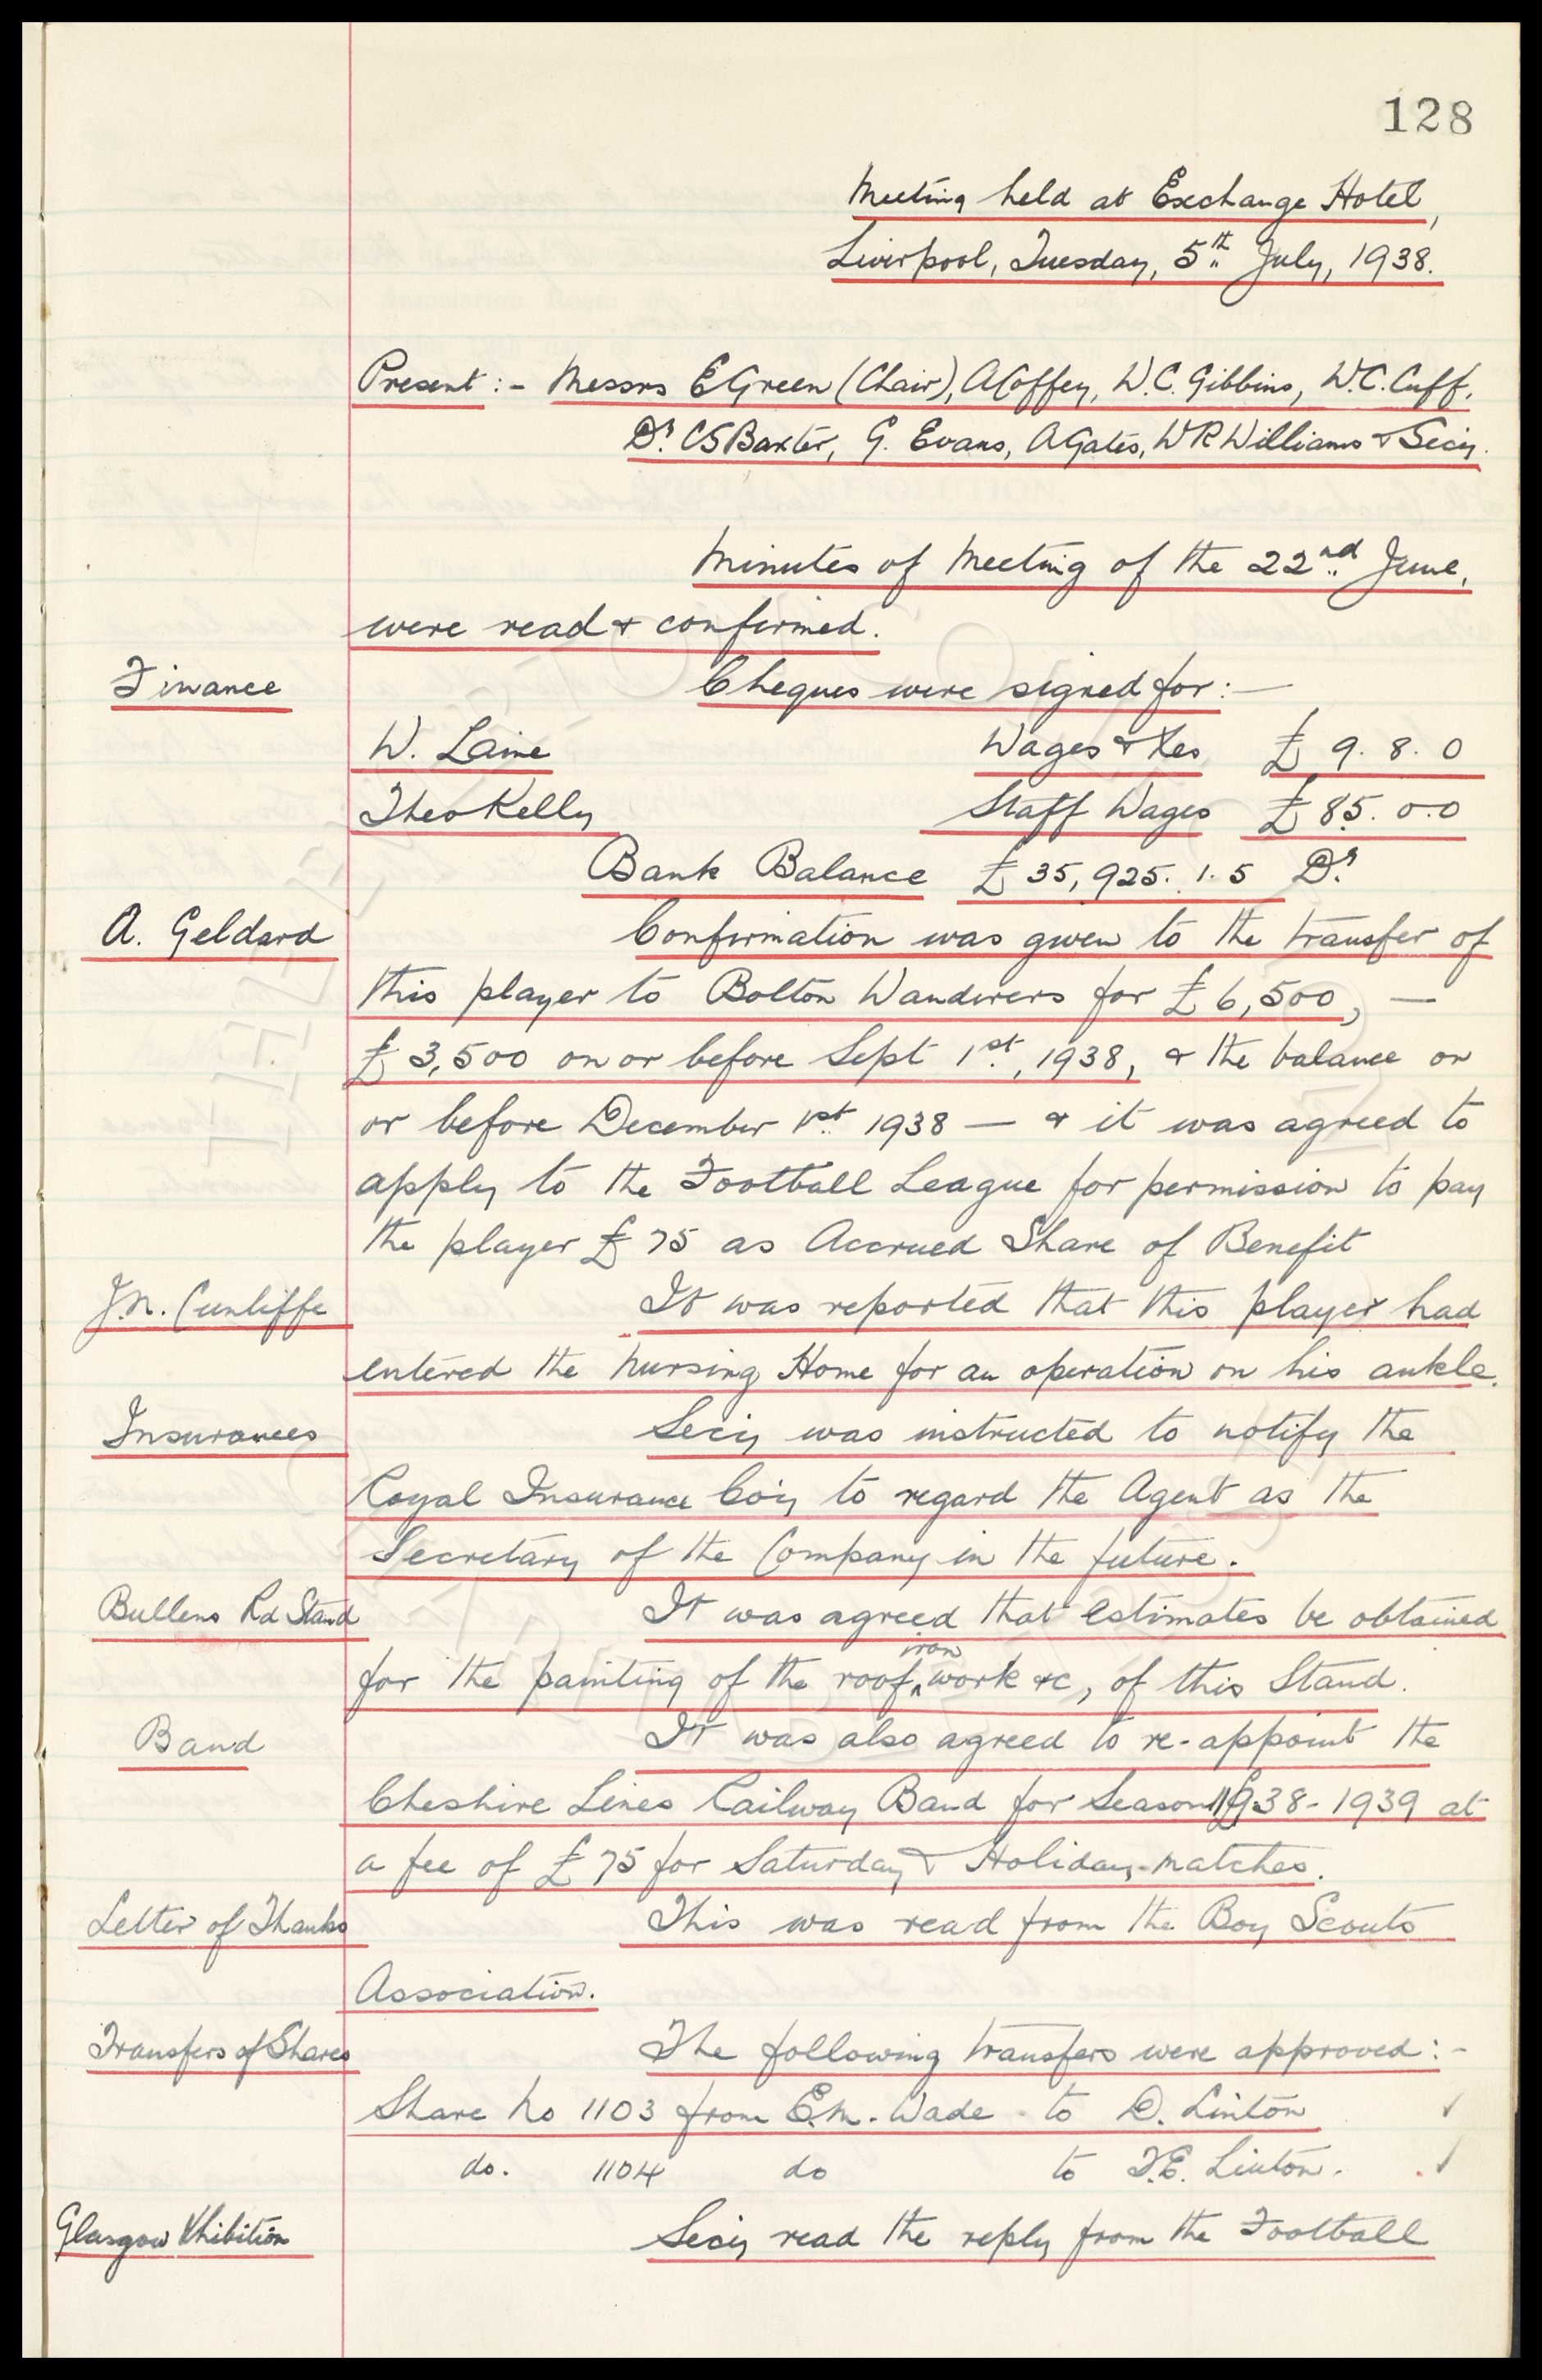 128
Meeting held at Exchange Hotel,
Liverpool, Tuesday, 5th July, 1938.
Present :- Messrs E Green (Chair), A Coffey, W.C. Gibbins, W.C. Cuff,
Dr. CS Baxter, G. Evans, A Gates, W R Williams & Secy.
Minutes of Meeting of the 22nd June,
were read & confirmed.
Finance
Cheques were signed for:—
W. Laine Wages & Xes £ 9. 8. 0
Theo Kelly Staff Wages £ 85. 0.0
Bank Balance £ 35,925. 1. 5 Dr.
A. Geldard
Confirmation was given to the transfer of
this player to Bolton Wanderers for £ 6,500, —
£ 3,500 on or before Sept 1st, 1938, & the balance on
or before December 1st 1938 — & it was agreed to
apply to the Football League for permission to pay
the player £ 75 as Accrued Share of Benefit
J.N. Cunliffe
It was reported that this player had
entered the Nursing Home for an operation on his ankle.
Insurances
Secy was instructed to notify the
Royal Insurance Co'y to regard the Agent as the
Secretary of the Company in the future.
Bullens Rd Stand
It was agreed that estimates be obtained
for the painting of the roof, iron work &c, of this Stand.
Band
It was also agreed to re-appoint the
Cheshire Lines Railway Band for Season 1938-1939 at
a fee of £ 75 for Saturday & Holiday-matches.
Letter of Thanks
This was read from the Boy Scouts
Association.
Transfers of Shares
The following transfers were approved:-
Share No 1103 from E.M. Wade - to D. Linton ✓
do. 1104 do to F.E. Linton. ✓
Glasgow Xhibition
Secy read the reply from the Football